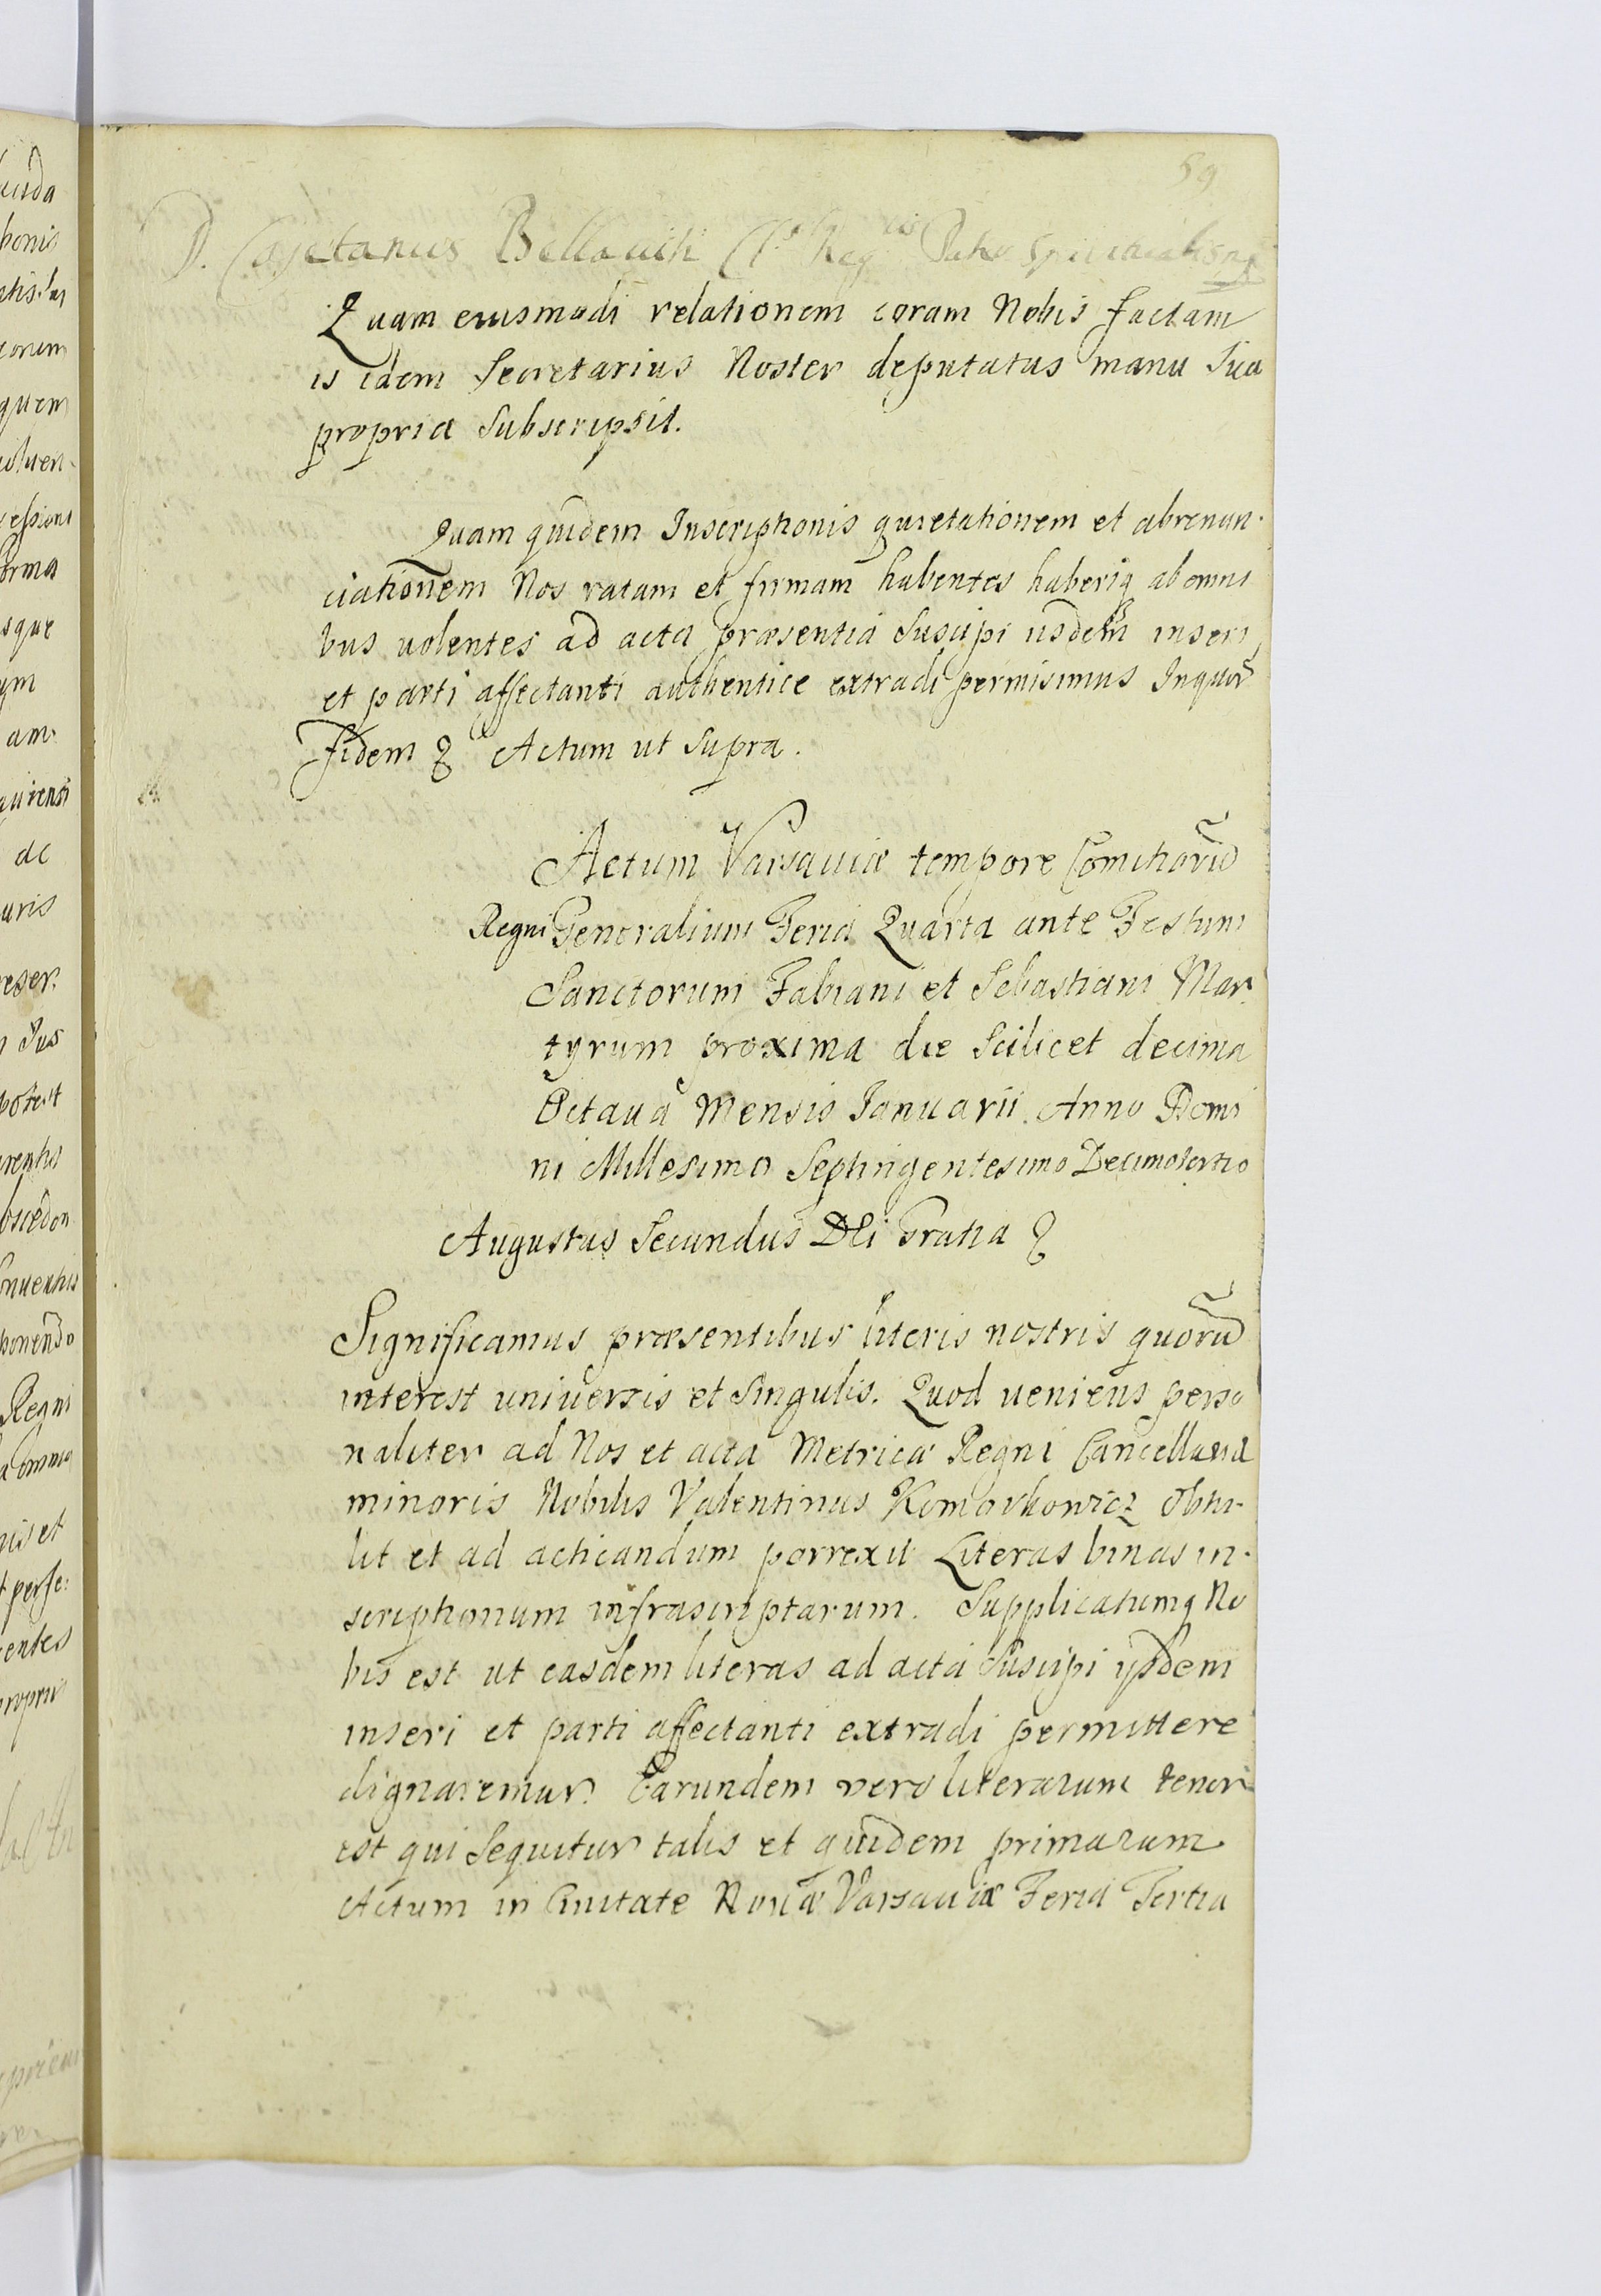 59
D. Cajetanus
Quam eiusmodi relationem coram Nobis factam
is idem Secretarius Noster deputatus manu Sua
propria Subscripsit.
Quam quidem Inscriptionis quietationem et abrenun-
ciationem Nos ratam et firmam habentes haberiq ab omni
bus uolentes ad acta præsentia Suscipi iisdem inseri
et parti affectanti authentice extradi permisimus Inquor̃
fidem Actum ut Supra.
Actum Varsaviæ tempore Comitiorũ
Regni Generalium Feria Quarta ante Festum
Sanctorum Fabiani et Sebastiani Mar
tyrum proxima die Scilicet decima
Octaua Mensis Ianuarii Anno Domi
ni Millesimo Septingentesimo Decimotertio
Augustus Secundus DEi Gratia
Significamus præsentibus literis nostris quorũ
interest universis et Singulis. Quod ueniens perso
naliter ad Nos et acta Metricæ Regni Cancellariæ
minoris Nobilis Valentinus Komorkowicz obtu-
lit et ad acticandum porrexit Literas binas in-
scriptionum infrascriptarum. Supplicatumq No
bis est ut easdem literas ad acta Suscipi ysdem
inseri et parti affectanti extradi permittere
dignaremur. Earundem vero literarum tenor
est qui Sequitur talis et quidem primarum
Actum in Ciuitate Noua Varsauiæ Feria Tertia